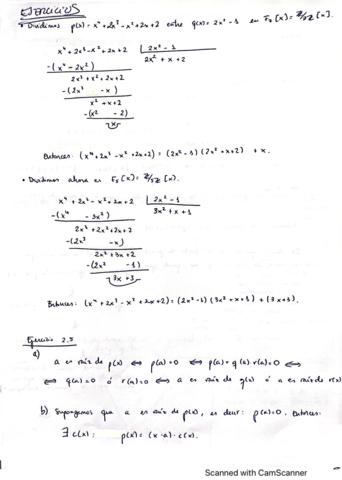 EJERCICIOS
• Dividimos p(x) = x⁴+2x³-x²+2x+2 entre q(x) = 2x²-1 en F₃[x] = Z/3Z [x].
x⁴+2x³-x²+2x+2 | 2x²-1
-(x⁴-2x²) 2x²+x+2
2x³+x²+2x+2
-(2x³ -x)
x²+x+2
-(x² -2)
x
Entonces: (x⁴+2x³-x²+2x+2) = (2x²-1)(2x²+x+2) + x.
• Dividimos ahora en F₅[x] = Z/5Z [x].
x⁴+2x³-x²+2x+2 | 2x²-1
-(x⁴ -3x²) 3x²+x+1
2x³+2x²+2x+2
-(2x³ -x)
2x²+3x+2
-(2x² -1)
3x+3
Entonces: (x⁴+2x³-x²+2x+2) = (2x²-1)(3x²+x+1) + (3x+3).
Ejercicio 2.5
a)
a es raíz de p(x) ⟺ p(a)=0 ⟺ p(a)=q(a)·r(a)=0 ⟺
⟺ q(a)=0 ó r(a)=0 ⟺ a es raíz de q(x) ó a es raíz de r(x)
b) Supongamos que a es raíz de p(x), es decir: p(a)=0. Entonces:
∃ c(x): p(x) = (x-a)·c(x).
Scanned with CamScanner